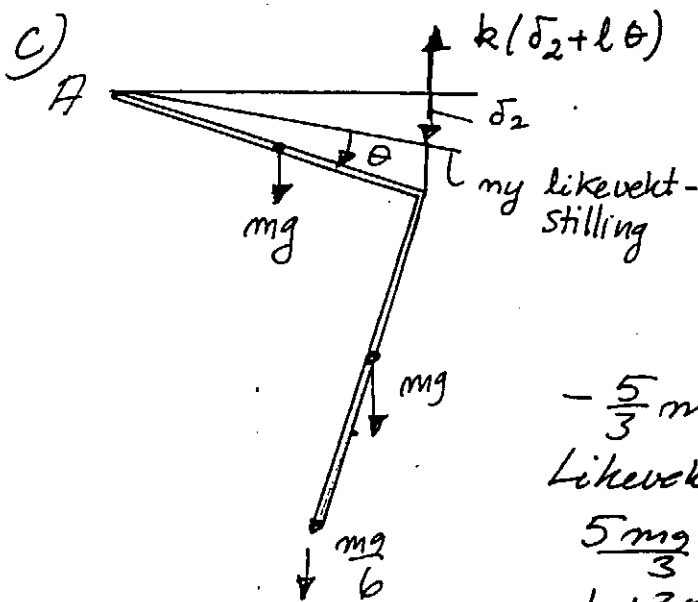 c)
k(δ₂+lθ)
A
δ₂
θ
ny likevekt-
stilling
mg
mg
- 5/3 m
Likevek
5mg/3
mg/6